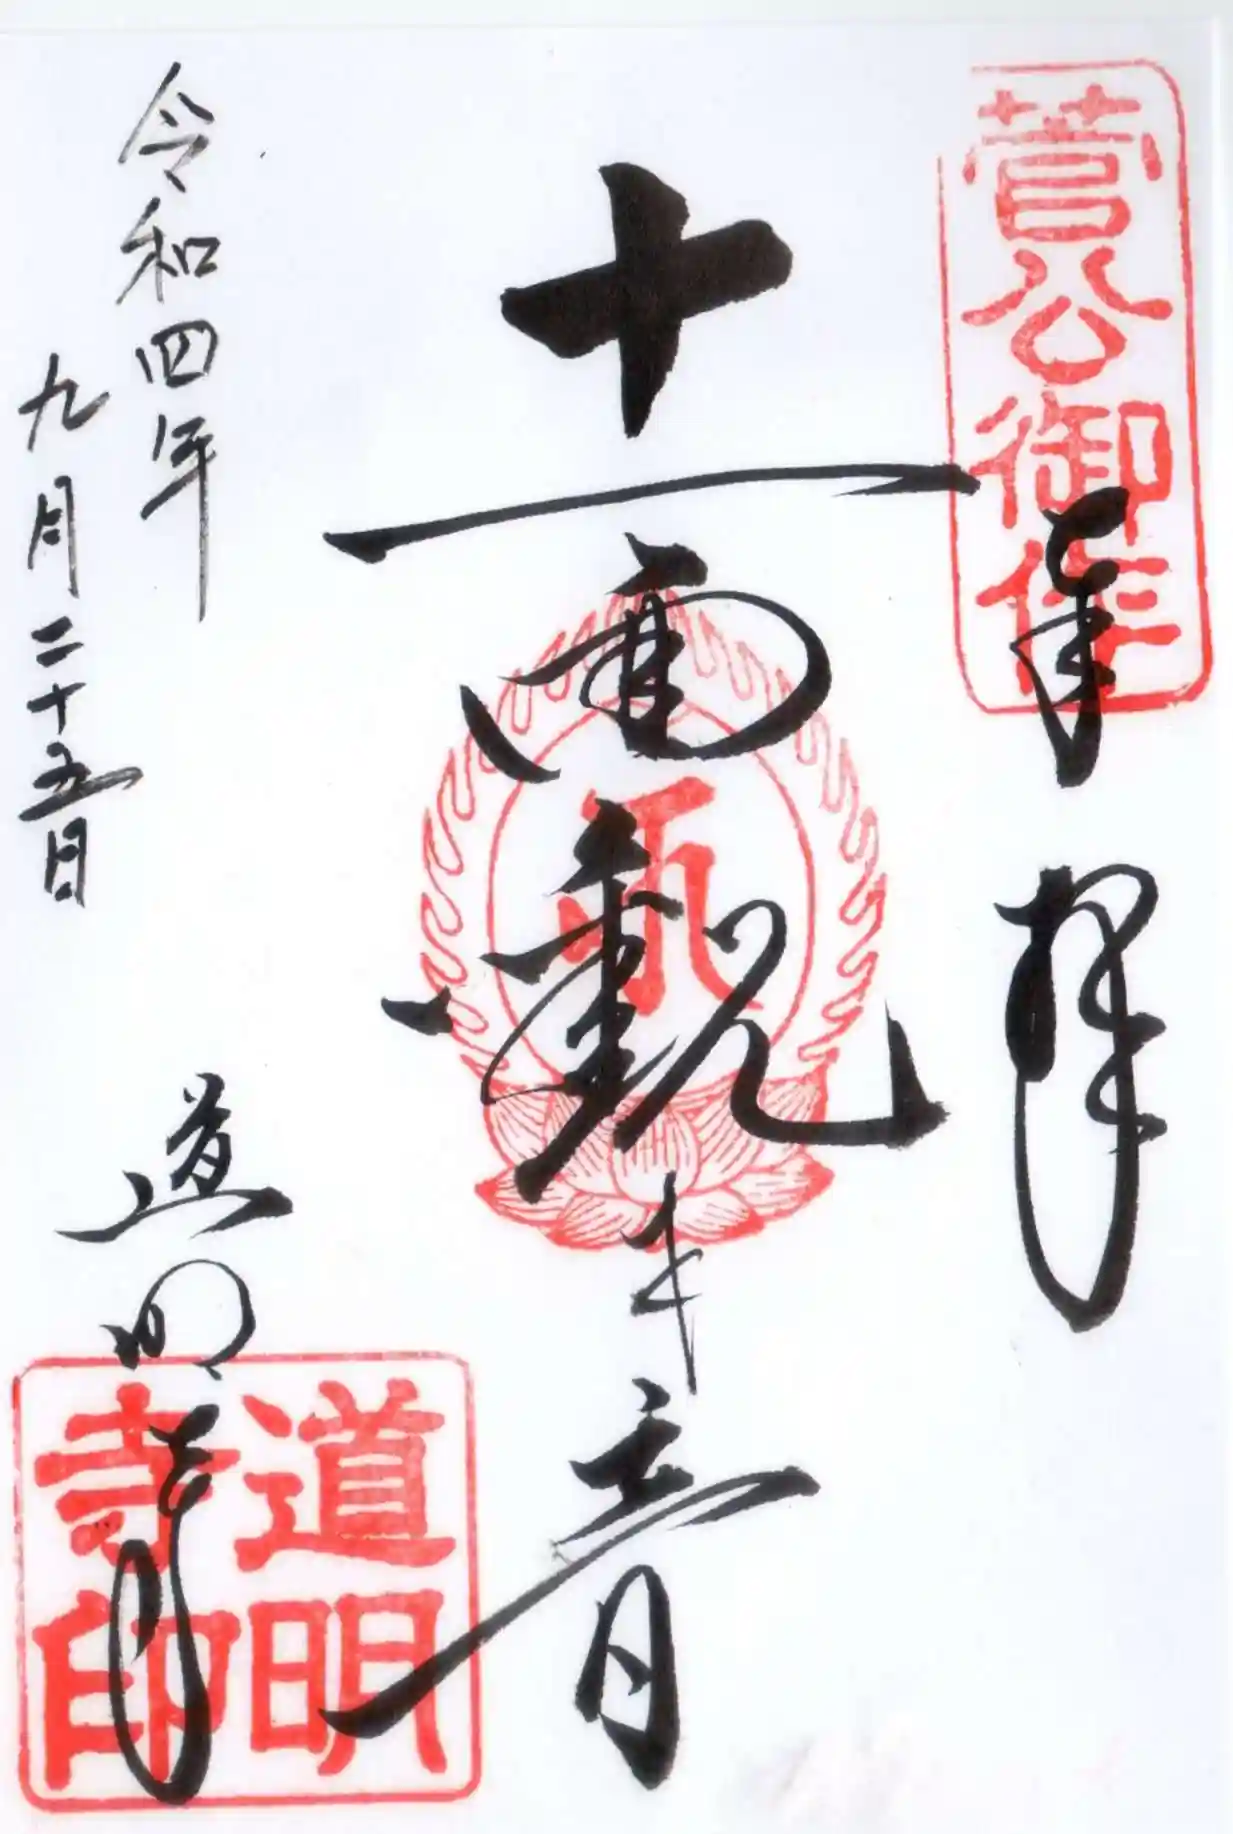 菅公御作
奉拝
十一面観世音
令和四年
九月二十五日
道明寺
道明
寺印